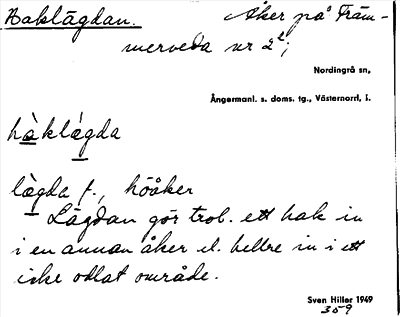 Haklägdan. Åker på Främ-
merveda nr 2²;
Nordingrå sn,
Ångermanl. s. doms. tg., Västernorrl. l.
hàklǽgda
lǽgda f., höåker
Lägdan gör trol. ett hak in
i en annan åker el. hellre in i ett
icke odlat område.
Sven Hiller 1949
359